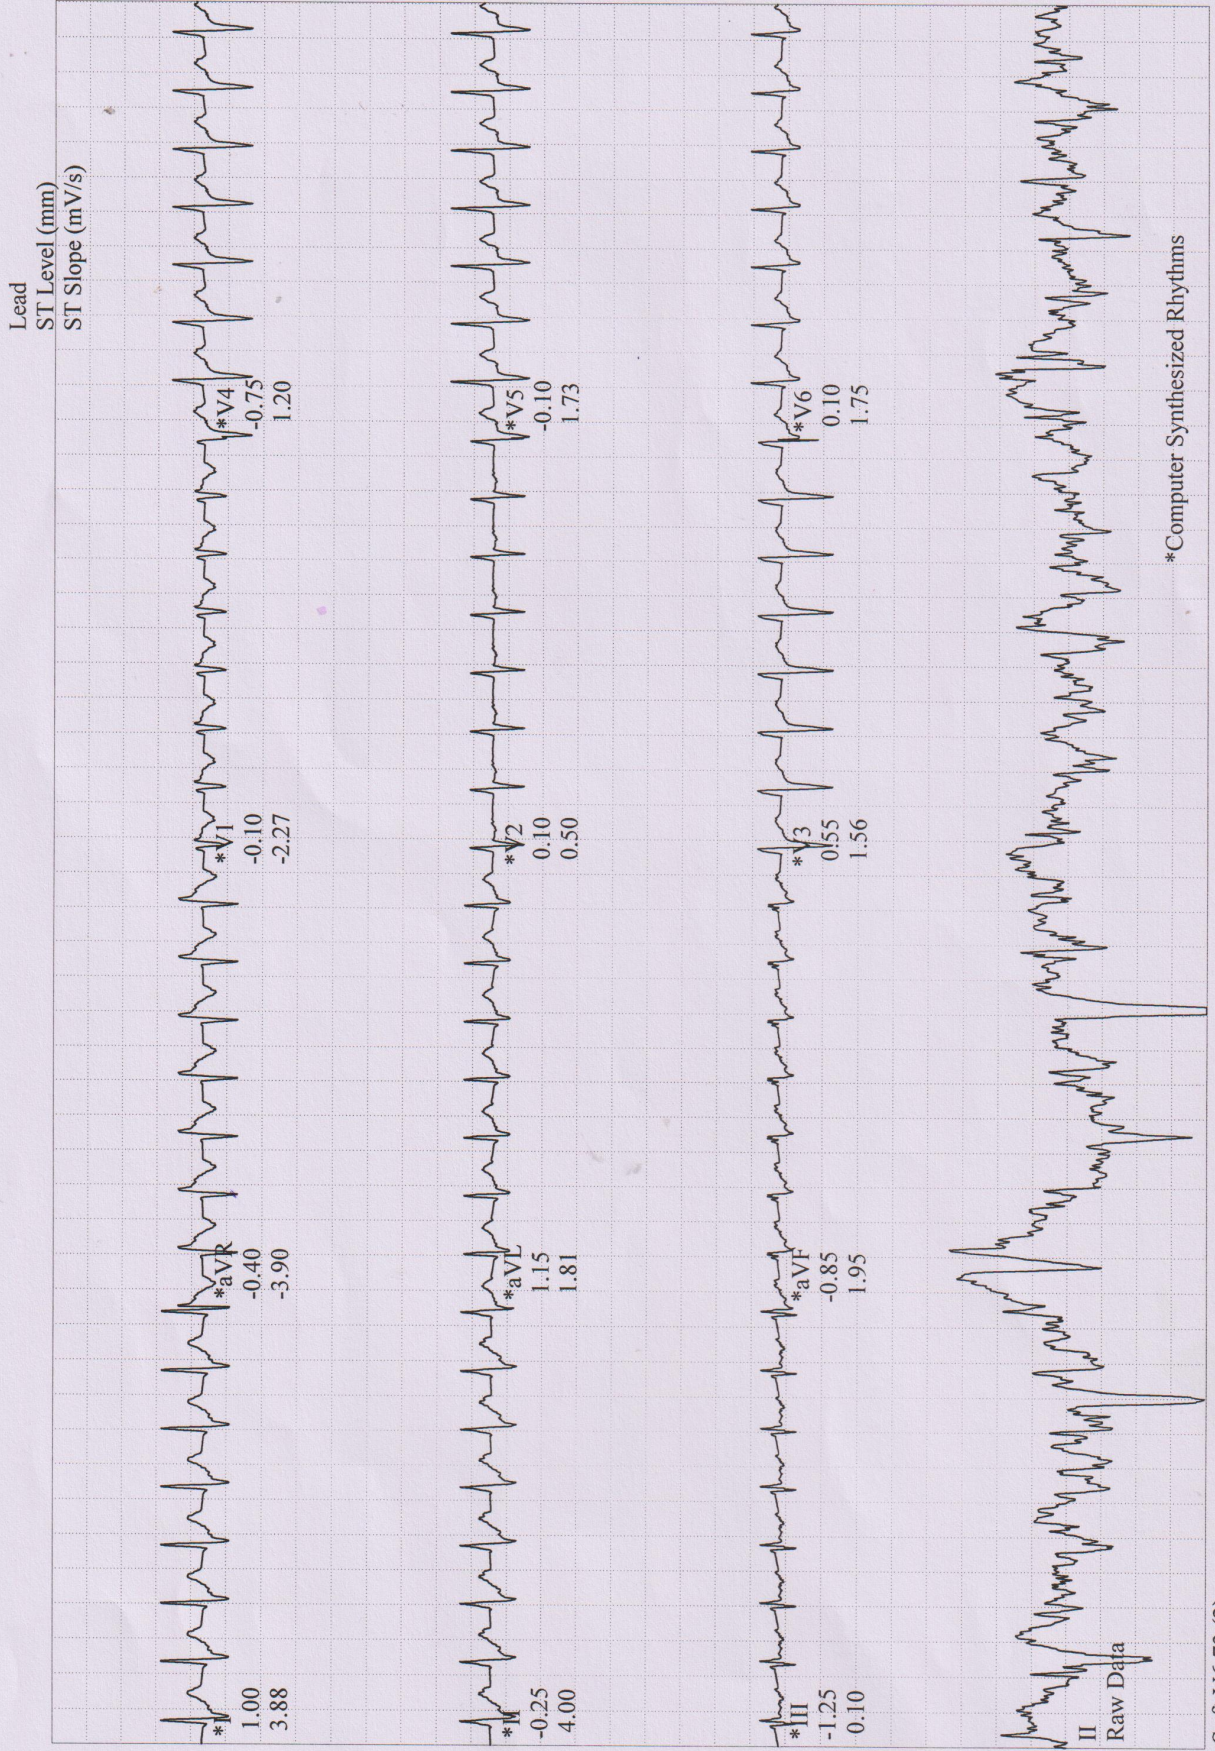 Lead
ST Level (mm)
ST Slope (mV/s)
*I
1.00
3.88
*aVR
-0.40
-3.90
*V1
-0.10
-2.27
*V4
-0.75
1.20
*II
-0.25
4.00
*aVL
1.15
1.81
*V2
0.10
0.50
*V5
-0.10
1.73
*III
-1.25
0.10
*aVF
-0.85
1.95
*V3
0.55
1.56
*V6
0.10
1.75
II
Raw Data
*Computer Synthesized Rhythms